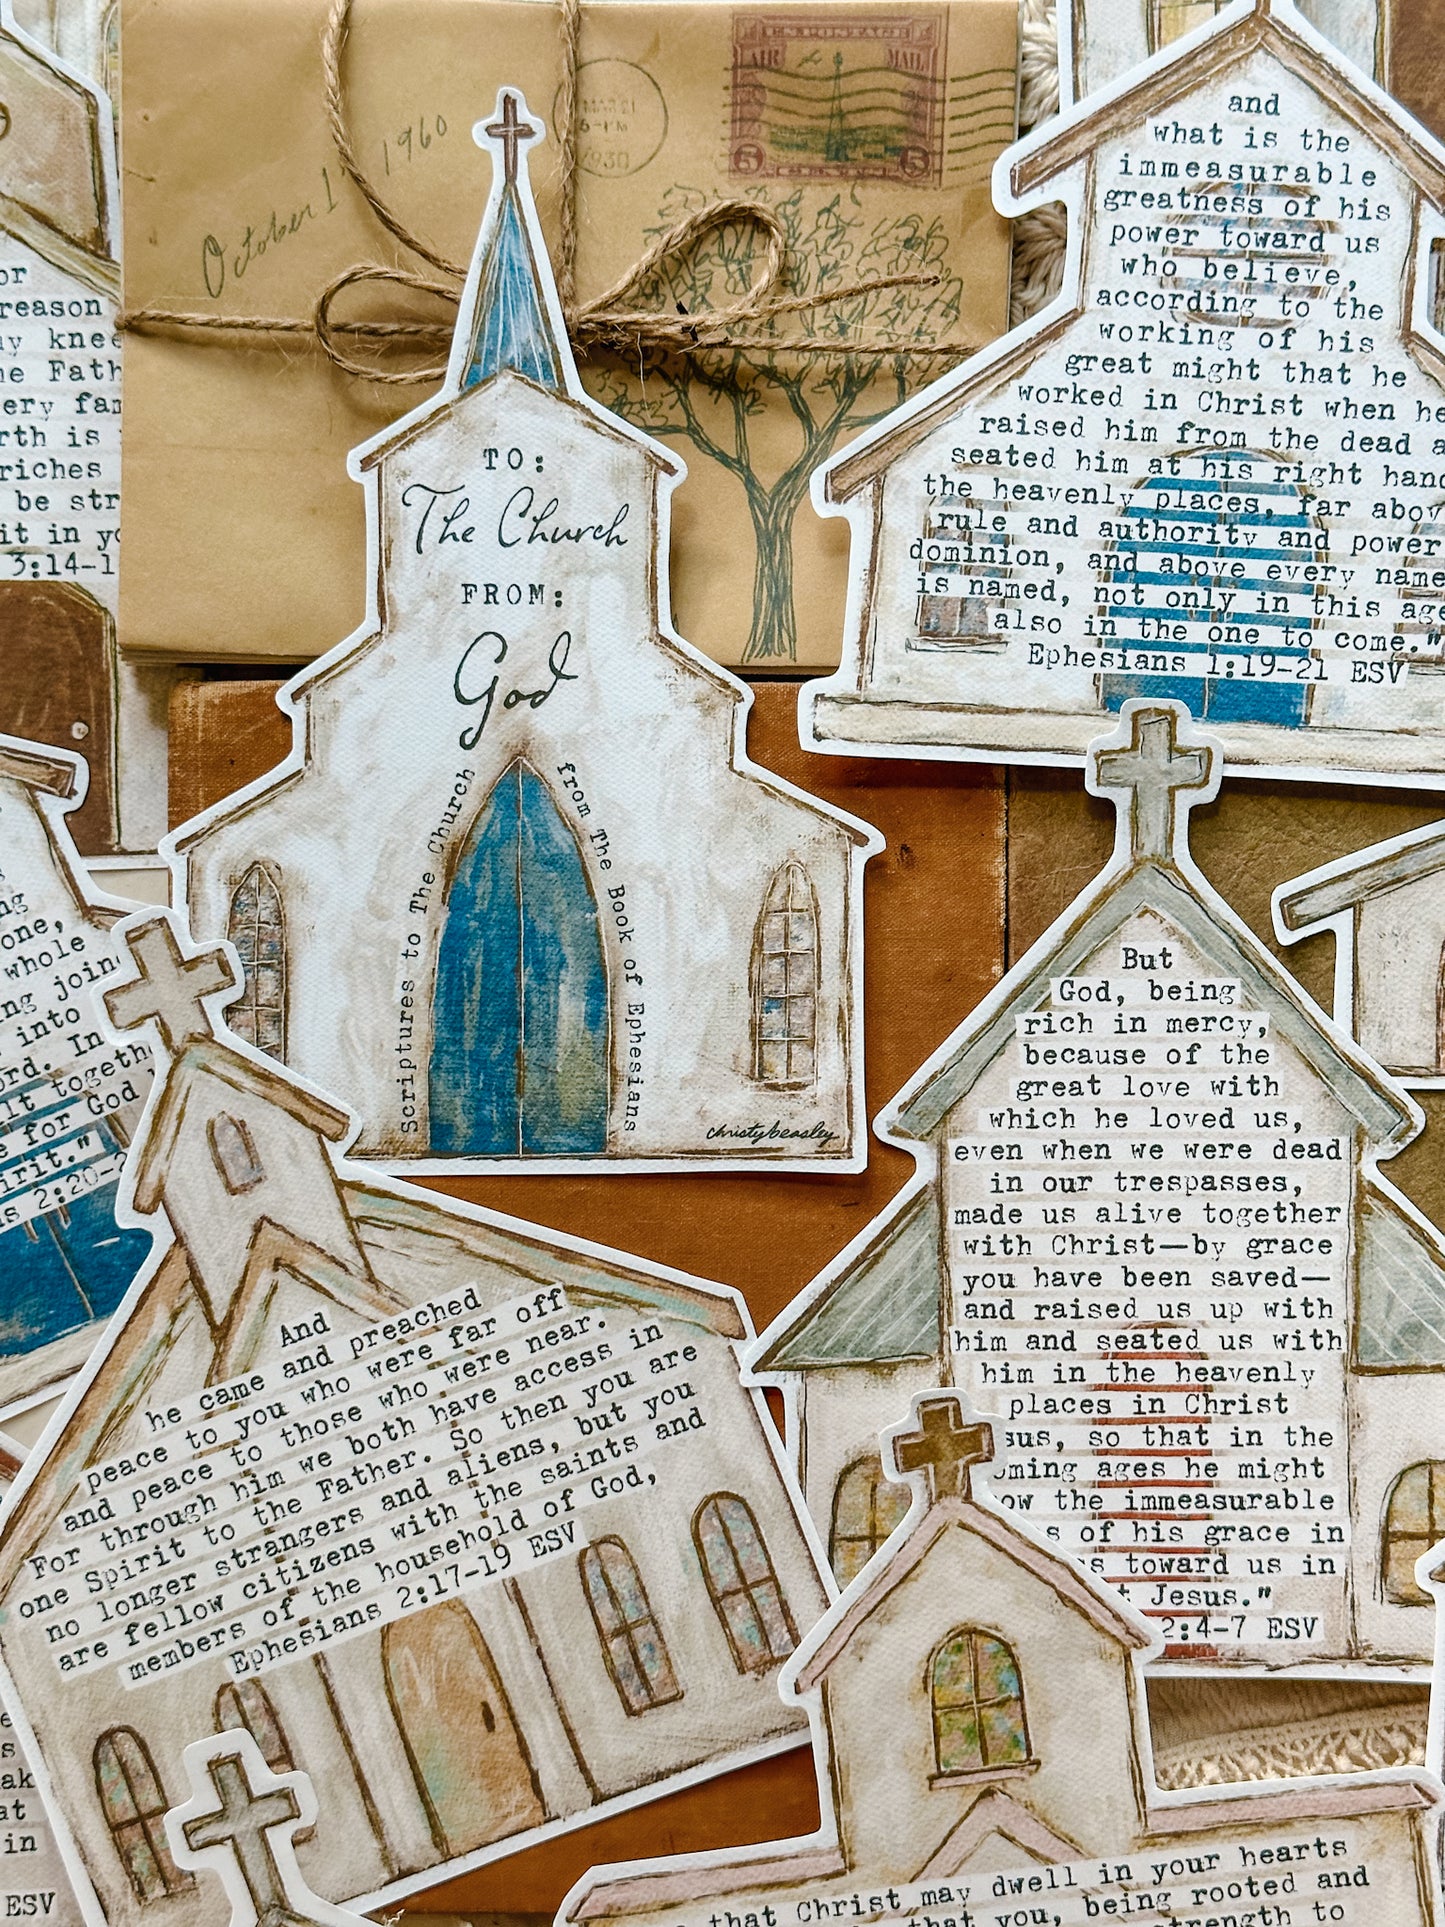 U.S. POSTAGE
AIR MAIL
5 5
CENTS
MAR 21
6-PM
1930
October 1 1960
TO:
The Church
FROM:
God
Scriptures to The Church
from The Book of Ephesians
christybeasley
and
what is the
immeasurable
greatness of his
power toward us
who believe,
according to the
working of his
great might that he
worked in Christ when he
raised him from the dead a
seated him at his right hand
the heavenly places, far abov
rule and authority and power
dominion, and above every name
is named, not only in this age
also in the one to come."
Ephesians 1:19-21 ESV
or
reason
knee
Fath
ery fam
rth is
riches
be str
it in yo
3:14-1
ng
one,
whole
ng joine
into
ord. In
lt togethe
for God
irit."
2:20-2
And
he came and preached
peace to you who were far off
and peace to those who were near.
For through him we both have access in
one Spirit to the Father. So then you are
no longer strangers and aliens, but you
are fellow citizens with the saints and
members of the household of God,
Ephesians 2:17-19 ESV
But
God, being
rich in mercy,
because of the
great love with
which he loved us,
even when we were dead
in our trespasses,
made us alive together
with Christ—by grace
you have been saved—
and raised us up with
him and seated us with
him in the heavenly
places in Christ
sus, so that in the
oming ages he might
ow the immeasurable
s of his grace in
s toward us in
t Jesus."
2:4-7 ESV
s
ak
at
in
ESV
that Christ may dwell in your hearts
that you, being rooted and
strength to